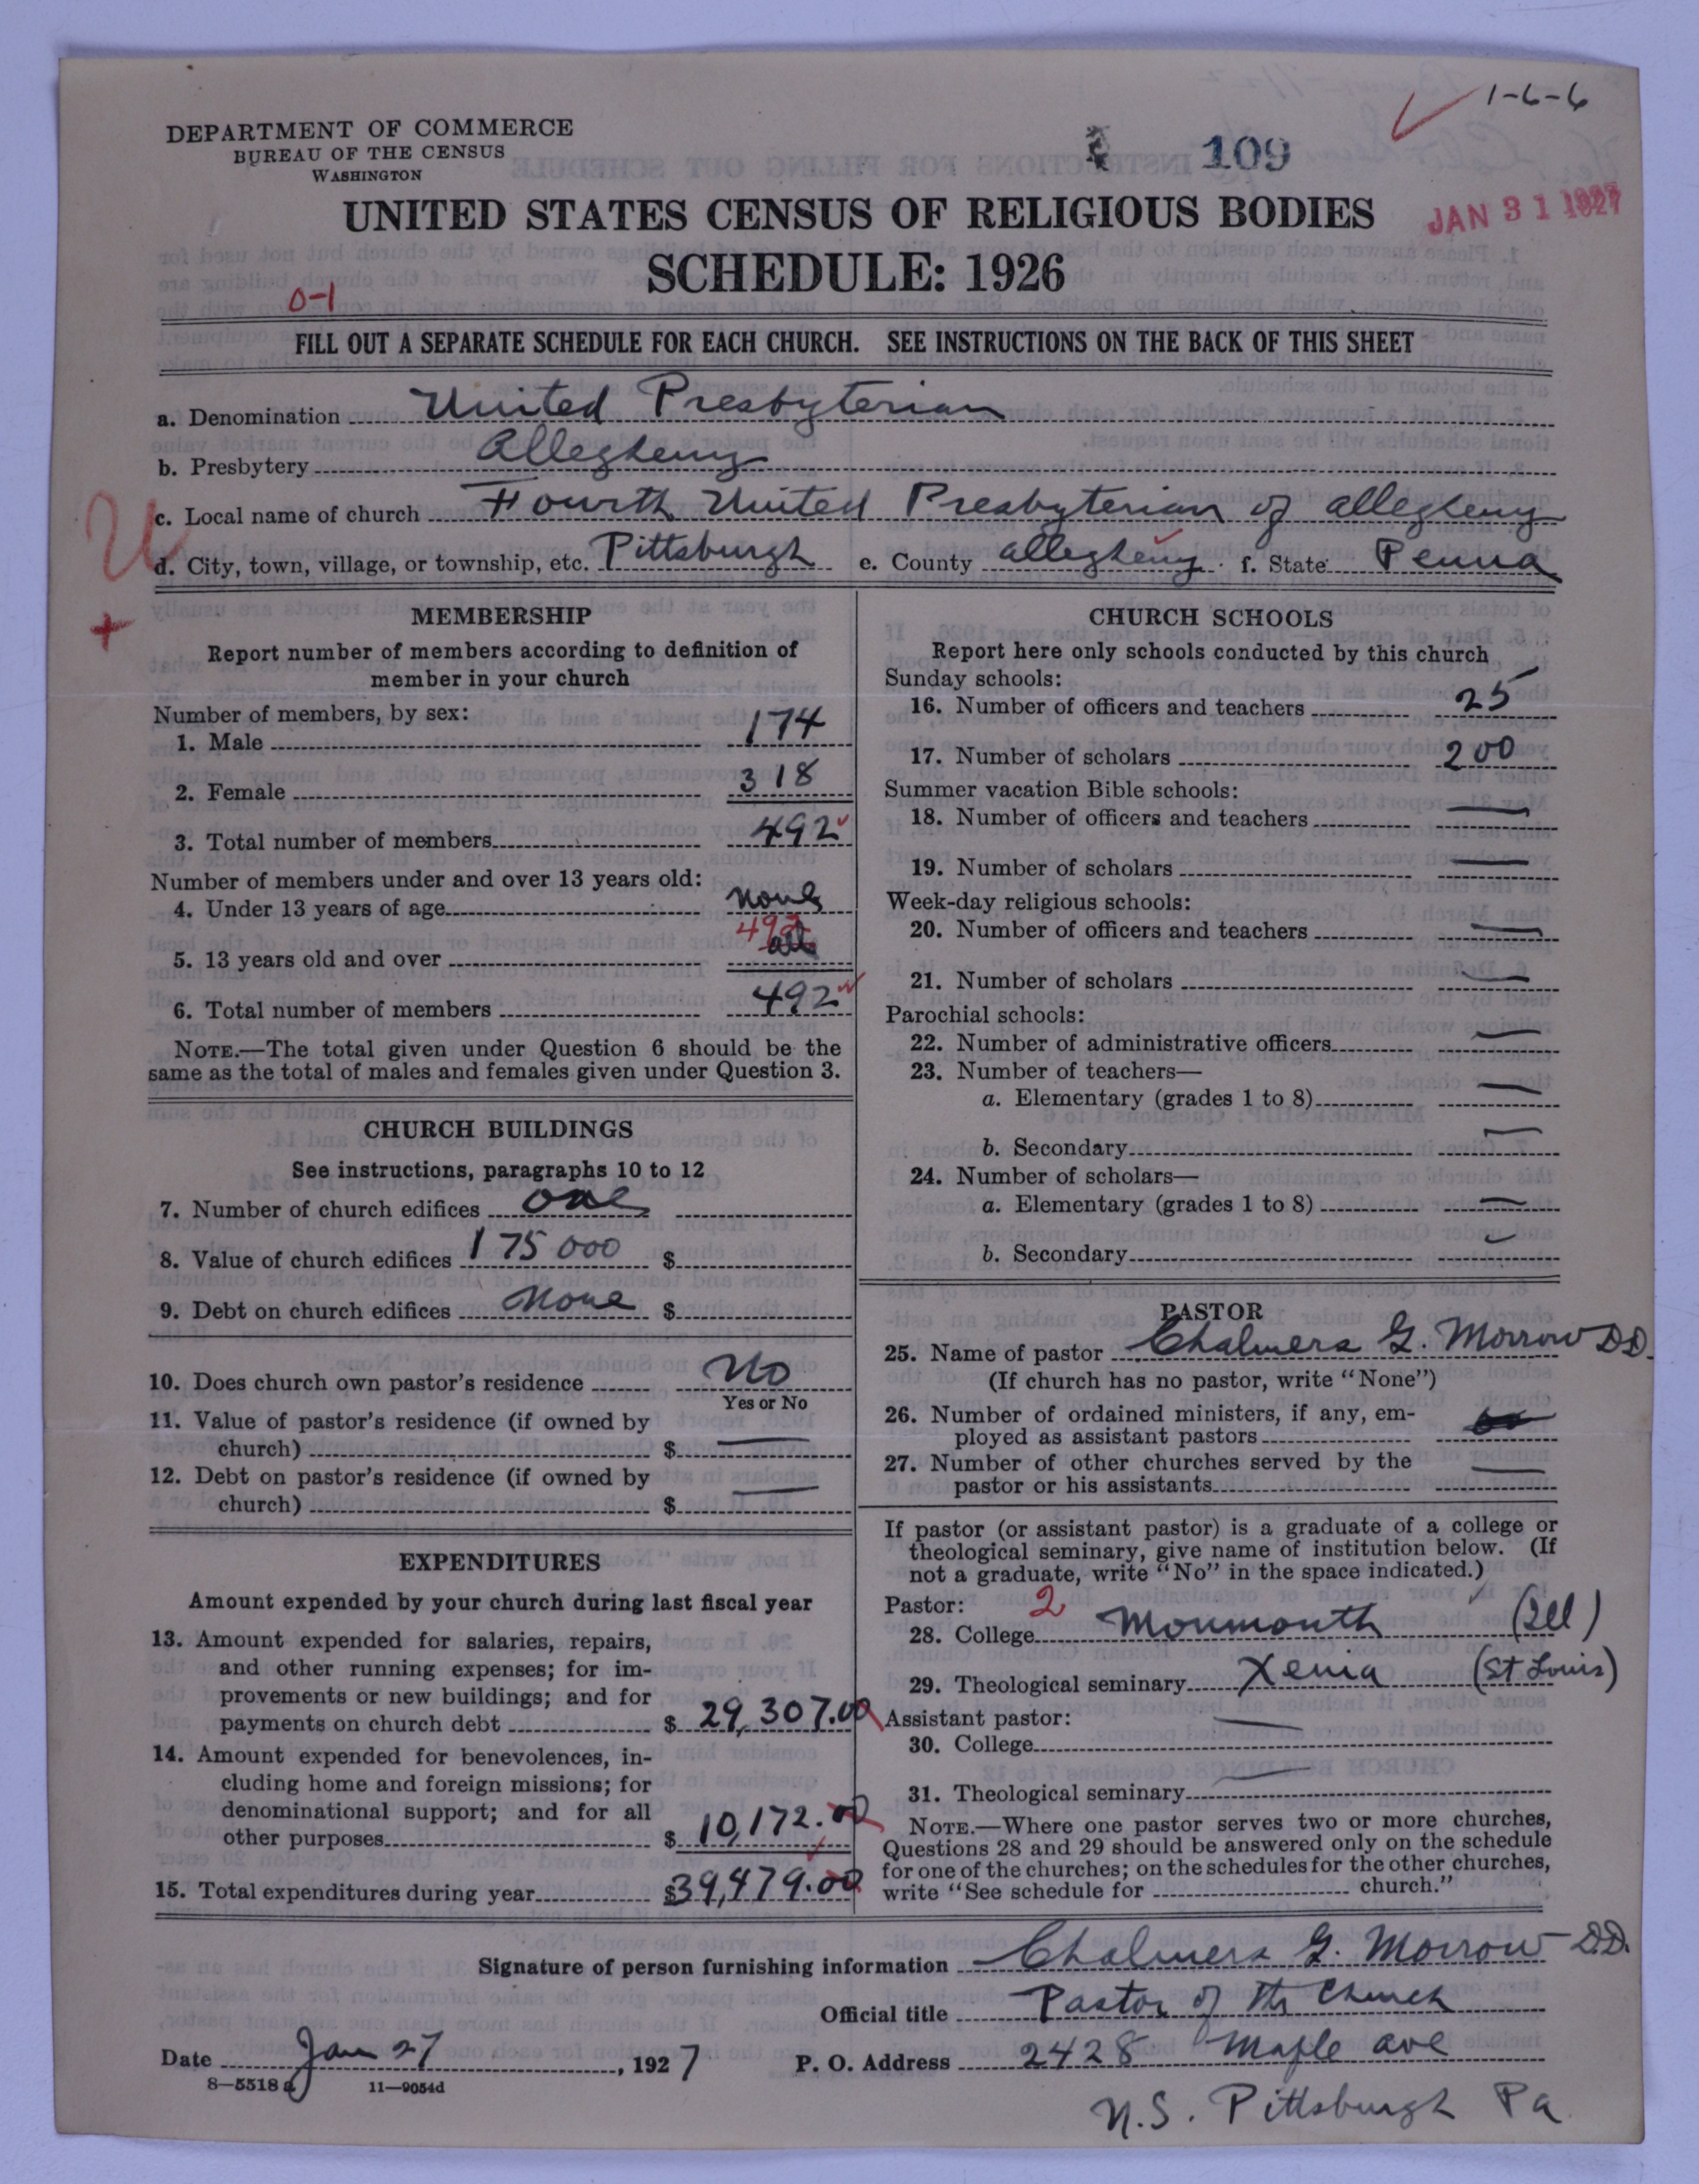 1-6-6
DEPARTMENT OF COMMERCE
BUREAU OF THE CENSUS
WASHINGTON
109
JAN 31 1927
UNITED STATES CENSUS OF RELIGIOUS BODIES
SCHEDULE: 1926
0-1
FILL OUT A SEPARATE SCHEDULE FOR EACH CHURCH. SEE INSTRUCTIONS ON THE BACK OF THIS SHEET
a. Denomination United Presbyterian
b. Presbytery Allegheny
c. Local name of church Fourth United Presbyterian of Allegheny
U
d. City, town, village, or township, etc. Pittsburgh e. County Allegheny f. State Penna
+
MEMBERSHIP
Report number of members according to definition of
member in your church
Number of members, by sex:
1. Male 174
2. Female 318
3. Total number of members 492
Number of members under and over 13 years old:
4. Under 13 years of age none
492
5. 13 years old and over all
6. Total number of members 492
NOTE.—The total given under Question 6 should be the
same as the total of males and females given under Question 3.
CHURCH BUILDINGS
See instructions, paragraphs 10 to 12
7. Number of church edifices one
8. Value of church edifices 175000 $
9. Debt on church edifices None $
10. Does church own pastor's residence No
Yes or No
11. Value of pastor's residence (if owned by
church) $ —
12. Debt on pastor's residence (if owned by
church) $ —
EXPENDITURES
Amount expended by your church during last fiscal year
13. Amount expended for salaries, repairs,
and other running expenses; for im-
provements or new buildings; and for
payments on church debt $ 29,307.00
14. Amount expended for benevolences, in-
cluding home and foreign missions; for
denominational support; and for all
other purposes $ 10,172.00
15. Total expenditures during year $39,479.00
CHURCH SCHOOLS
Report here only schools conducted by this church
Sunday schools:
16. Number of officers and teachers 25
17. Number of scholars 200
Summer vacation Bible schools:
18. Number of officers and teachers —
19. Number of scholars —
Week-day religious schools:
20. Number of officers and teachers —
21. Number of scholars —
Parochial schools:
22. Number of administrative officers —
23. Number of teachers—
a. Elementary (grades 1 to 8) —
b. Secondary —
24. Number of scholars—
a. Elementary (grades 1 to 8) —
b. Secondary —
PASTOR
25. Name of pastor Chalmers G. Morrow DD.
(If church has no pastor, write "None")
26. Number of ordained ministers, if any, em-
ployed as assistant pastors
27. Number of other churches served by the
pastor or his assistants —
If pastor (or assistant pastor) is a graduate of a college or
theological seminary, give name of institution below. (If
not a graduate, write "No" in the space indicated.)
Pastor: 2
28. College Monmouth (Ill)
29. Theological seminary Xenia (St Louis)
Assistant pastor:
30. College —
31. Theological seminary —
NOTE.—Where one pastor serves two or more churches,
Questions 28 and 29 should be answered only on the schedule
for one of the churches; on the schedules for the other churches,
write "See schedule for church."
Signature of person furnishing information Chalmers G. Morrow D.D.
Official title Pastor of the Church
Date Jan 27, 1927 P. O. Address 2428 Maple ave
8—5518a 11—9054d
N.S. Pittsburgh Pa